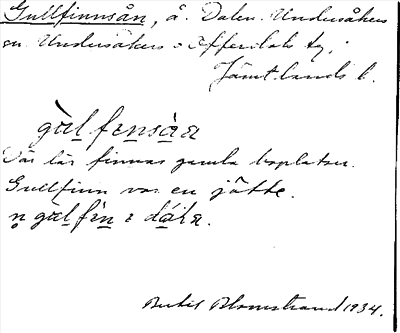 Gullfinnsån, å. Dalen. Undersåkers
sn. Undersåkers o Offerdals tg,
Jämtlands l.
gɷ̀l fɪnsàa
Där lär finnas gamla boplatser.
Gullfinn var en jätte.
n gɷl fìn ɪ dáɫa.
Bertil Blomstrand 1934.